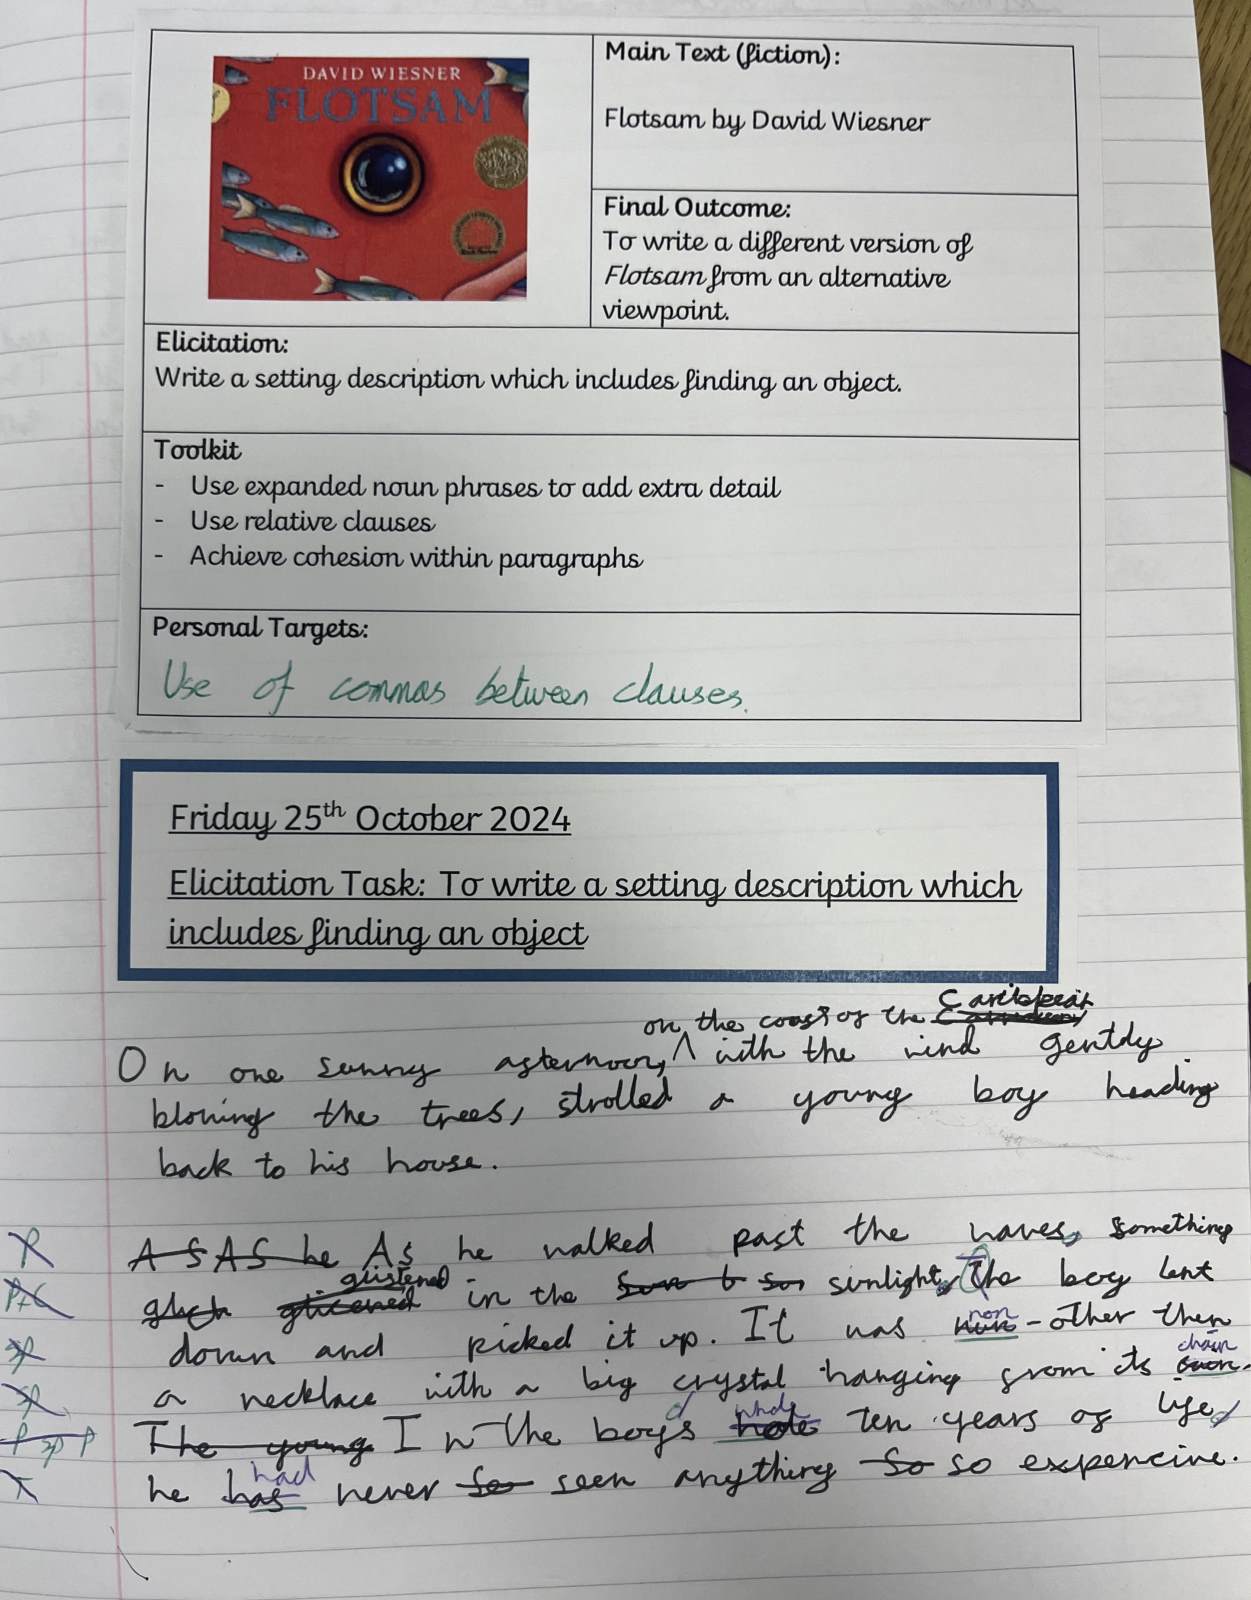 DAVID WIESNER
FLOTSAM
Main Text (fiction):
Flotsam by David Wiesner
Final Outcome:
To write a different version of
Flotsam from an alternative
viewpoint.
Elicitation:
Write a setting description which includes finding an object.
Toolkit
- Use expanded noun phrases to add extra detail
- Use relative clauses
- Achieve cohesion within paragraphs
Personal Targets:
Use of commas between clauses.
Friday 25th October 2024
Elicitation Task: To write a setting description which
includes finding an object
on the coast of the Caribbean
On one sunny afternoon, ^ with the wind gently
blowing the trees, strolled a young boy heading
back to his house.
P
As As he As he walked past the waves, something
glistened
P+C
in the sun sunlight, The boy bent
sp
down and picked it up. It was non-other then
chain
sp
a necklace with a big crystal hanging from its
P sp P
The young In the boy's whole ten years of life,
he has had never so seen anything so so expencive.